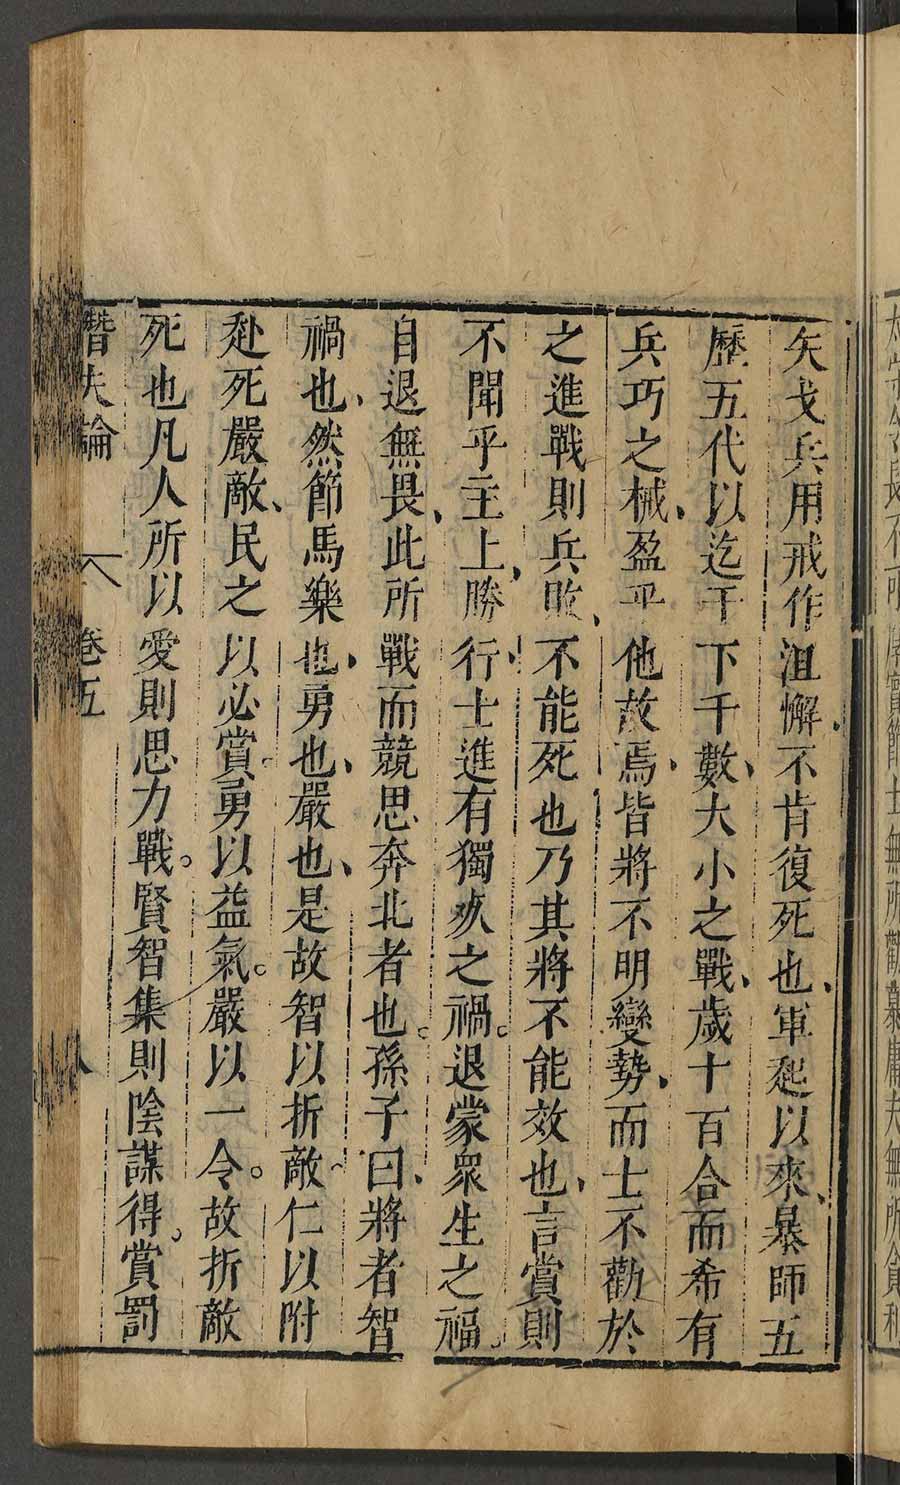 矢戈兵用戒作沮懈不肯復死也軍起以來暴師五
歷五代以迄于下千數大小之戰歲十百合而希有
兵巧之械盈乎他故焉皆將不明變勢而士不勸於
之進戰則兵敗不能死也乃其將不能效也言賞則
不聞乎主上勝行士進有獨死之禍退蒙衆生之福
自退無畏此所戰而競思奔北者也孫子曰將者智
禍也然節馬樂也勇也嚴也是故智以折敵仁以附
赴死嚴敵民之以必賞勇以益氣嚴以一令故折敵
死也凡人所以愛則思力戰賢智集則陰謀得賞罰
潛夫論 卷五 八